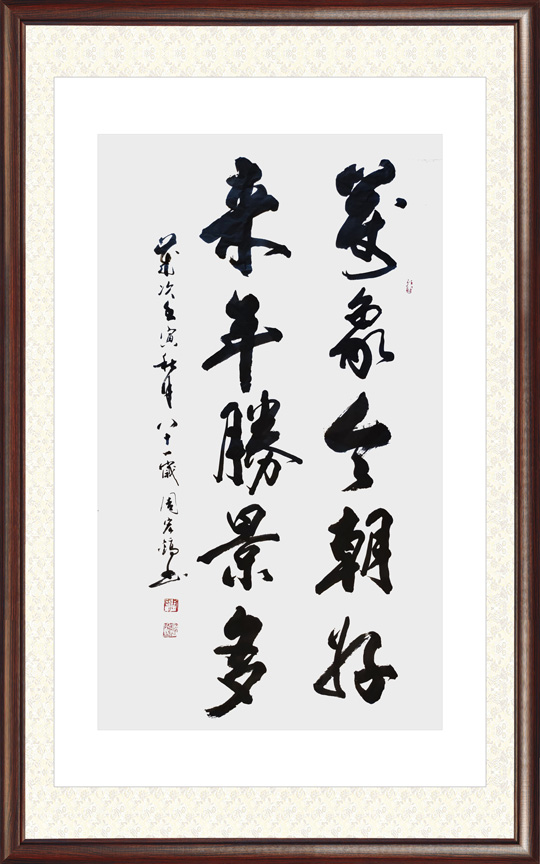 萬象今朝好
来年勝景多
歲次壬寅秋月八十一歲周宏鎬书